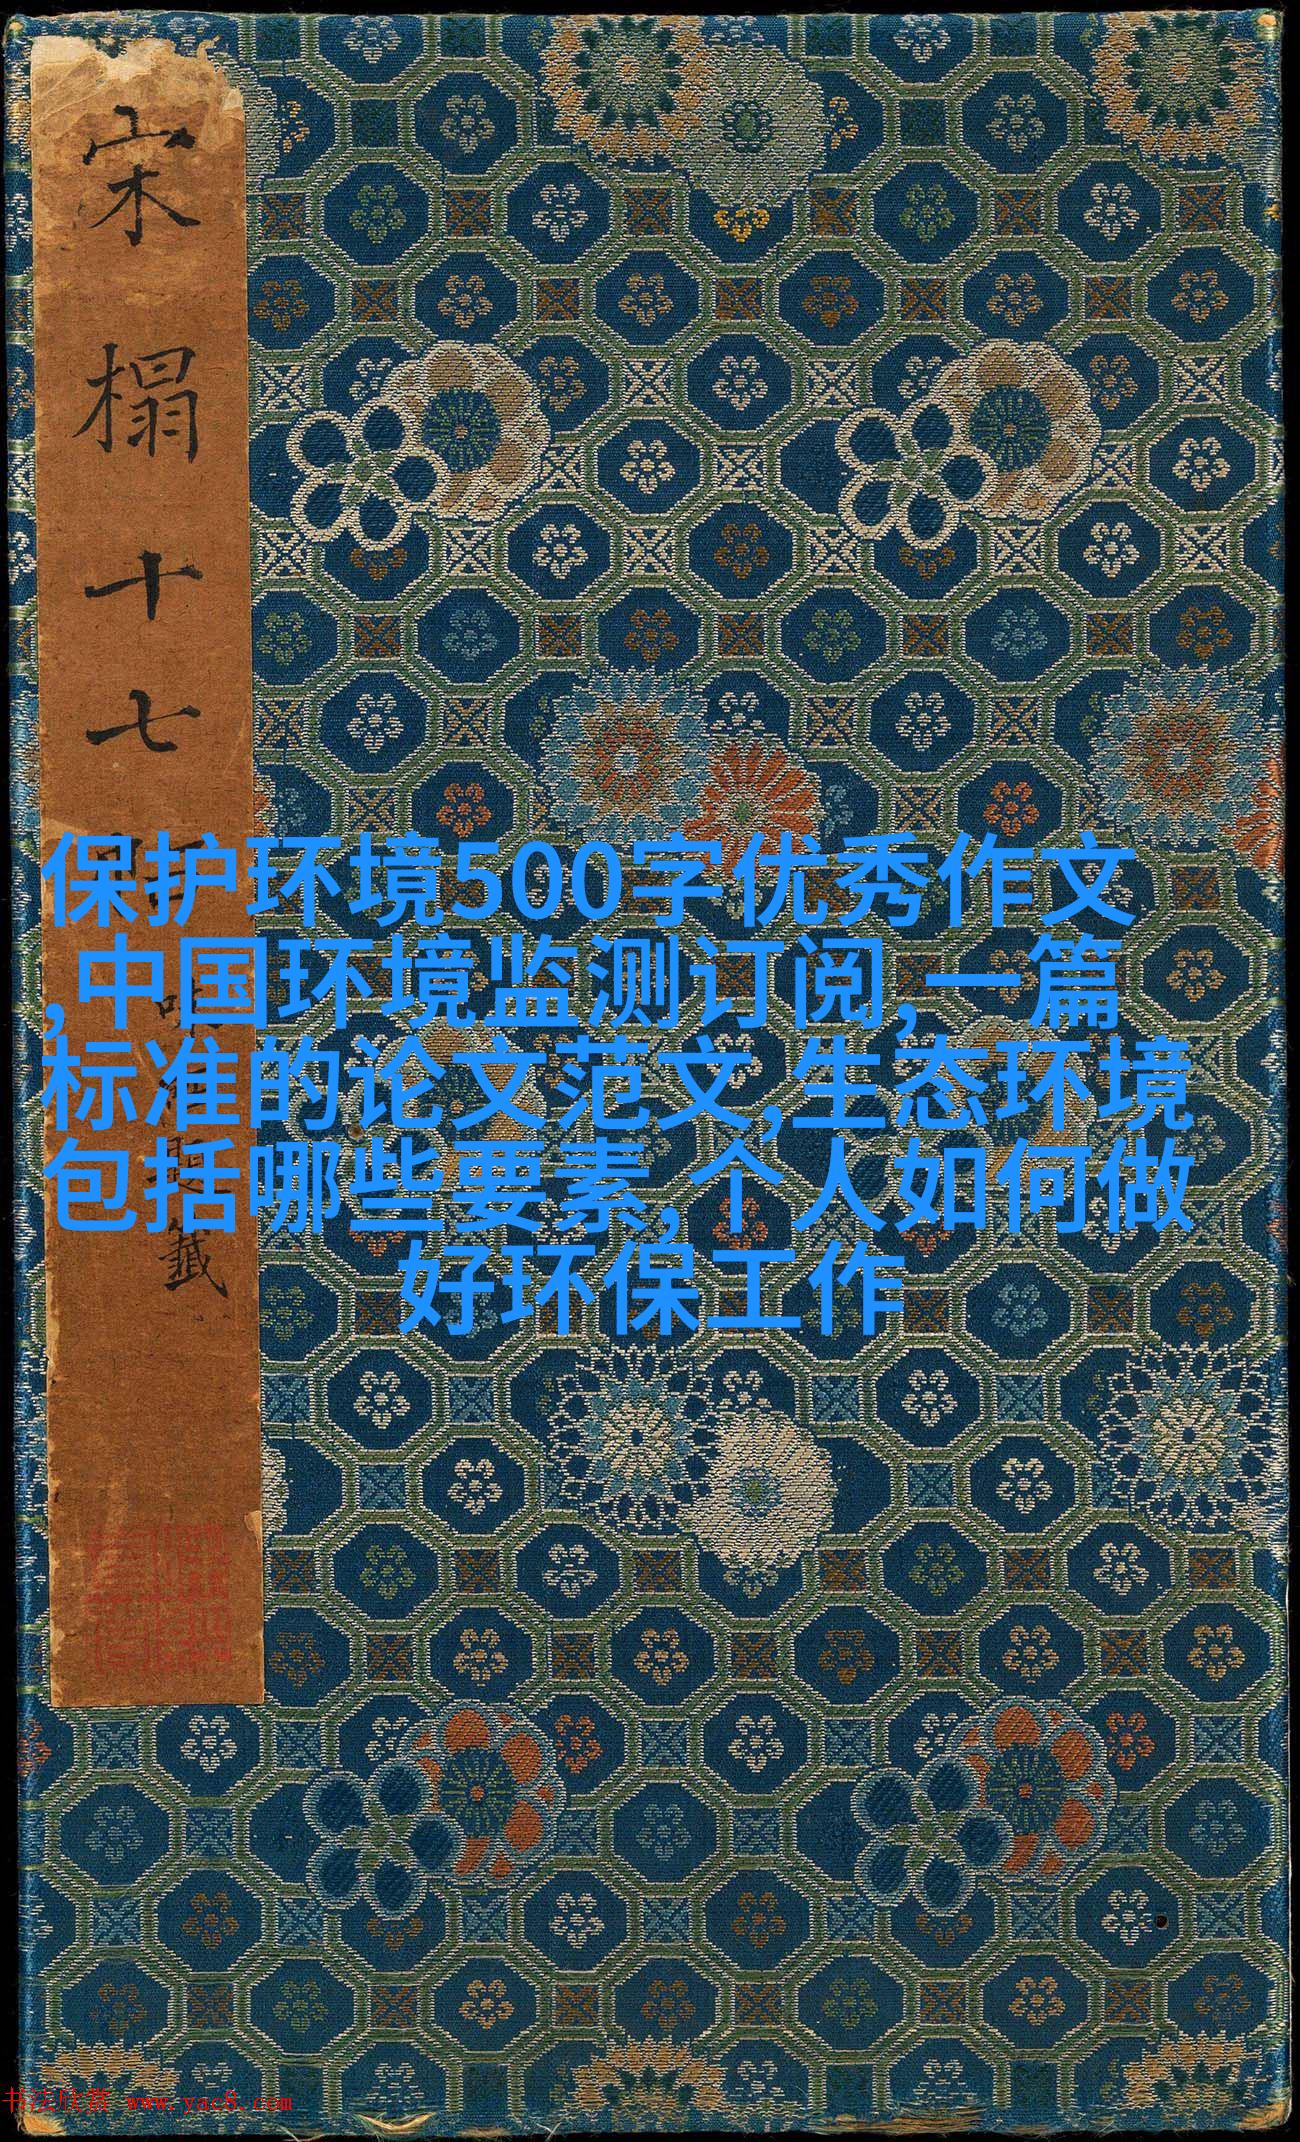 宋榻十七
籤
保护环境500字优秀作文
,中国环境监测订阅,一篇
标准的论文范文,生态环境
包括哪些要素,个人如何做
好环保工作
书法欣赏 www.yac8.com